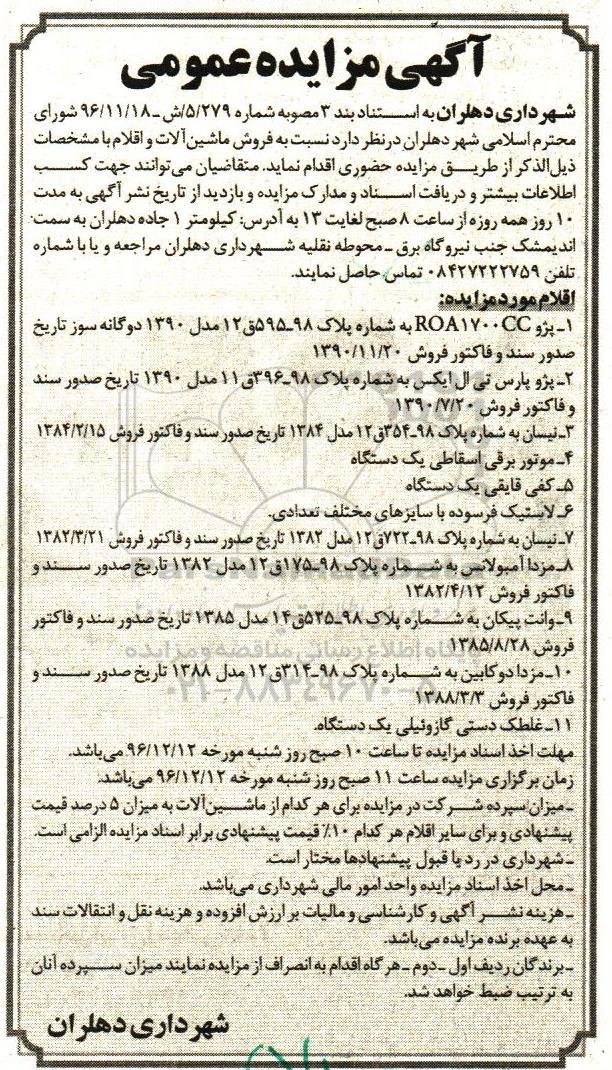 آگهی مزایده عمومی
شهرداری دهلران به استناد بند ۳ مصوبه شماره ۵/۲۷۹/ش ـ ۹۶/۱۱/۱۸ شورای
محترم اسلامی شهر دهلران درنظر دارد نسبت به فروش ماشین‌آلات و اقلام با مشخصات
ذیل‌الذکر از طریق مزایده حضوری اقدام نماید. متقاضیان می‌توانند جهت کسب
اطلاعات بیشتر و دریافت اسناد و مدارک مزایده و بازدید از تاریخ نشر آگهی به مدت
۱۰ روز همه روزه از ساعت ۸ صبح لغایت ۱۳ به آدرس: کیلومتر ۱ جاده دهلران به سمت
اندیمشک جنب نیروگاه برق ـ محوطه نقلیه شهرداری دهلران مراجعه و یا با شماره
تلفن ۰۸۴۲۷۲۲۲۷۵۹ تماس حاصل نمایند.
اقلام مورد مزایده:
۱ـ پژو ROA۱۷۰۰CC به شماره پلاک ۹۸ـ۵۹۵ق۱۲ مدل ۱۳۹۰ دوگانه سوز تاریخ
صدور سند و فاکتور فروش ۱۳۹۰/۱۱/۲۰
۲ـ پژو پارس تی ال ایکس به شماره پلاک ۹۸ـ۳۹۶ق۱۱ مدل ۱۳۹۰ تاریخ صدور سند
و فاکتور فروش ۱۳۹۰/۷/۲۰
۳ـ نیسان به شماره پلاک ۹۸ـ۳۵۴ق۱۲ مدل ۱۳۸۴ تاریخ صدور سند و فاکتور فروش ۱۳۸۴/۲/۱۵
۴ـ موتور برقی اسقاطی یک دستگاه
۵ـ کفی قایقی یک دستگاه
۶ـ لاستیک فرسوده با سایزهای مختلف تعدادی.
۷ـ نیسان به شماره پلاک ۹۸ـ۷۲۲ق۱۲ مدل ۱۳۸۲ تاریخ صدور سند و فاکتور فروش ۱۳۸۲/۳/۲۱
۸ـ مزدا آمبولانس به شماره پلاک ۹۸ـ۱۷۵ق۱۲ مدل ۱۳۸۲ تاریخ صدور سند و
فاکتور فروش ۱۳۸۲/۴/۱۲
۹ـ وانت پیکان به شماره پلاک ۹۸ـ۵۲۵ق۱۴ مدل ۱۳۸۵ تاریخ صدور سند و فاکتور
فروش ۱۳۸۵/۸/۲۸
۱۰ـ مزدا دوکابین به شماره پلاک ۹۸ـ۳۱۴ق۱۲ مدل ۱۳۸۸ تاریخ صدور سند و
فاکتور فروش ۱۳۸۸/۳/۳
۱۱ـ غلطک دستی گازوئیلی یک دستگاه.
مهلت اخذ اسناد مزایده تا ساعت ۱۰ صبح روز شنبه مورخه ۹۶/۱۲/۱۲ می‌باشد.
زمان برگزاری مزایده ساعت ۱۱ صبح روز شنبه مورخه ۹۶/۱۲/۱۲ می‌باشد.
ـ میزان سپرده شرکت در مزایده برای هر کدام از ماشین‌آلات به میزان ۵ درصد قیمت
پیشنهادی و برای سایر اقلام هر کدام ۱۰٪ قیمت پیشنهادی برابر اسناد مزایده الزامی است.
ـ شهرداری در رد یا قبول پیشنهادها مختار است.
ـ محل اخذ اسناد مزایده واحد امور مالی شهرداری می‌باشد.
ـ هزینه نشر آگهی و کارشناسی و مالیات بر ارزش افزوده و هزینه نقل و انتقالات سند
به عهده برنده مزایده می‌باشد.
ـ برندگان ردیف اول ـ دوم ـ هرگاه اقدام به انصراف از مزایده نمایند میزان سپرده آنان
به ترتیب ضبط خواهد شد.
شهرداری دهلران
پایگاه اطلاع رسانی مناقصه و مزایده
۰۲۱-۸۸۳۴۹۶۷۰-۵